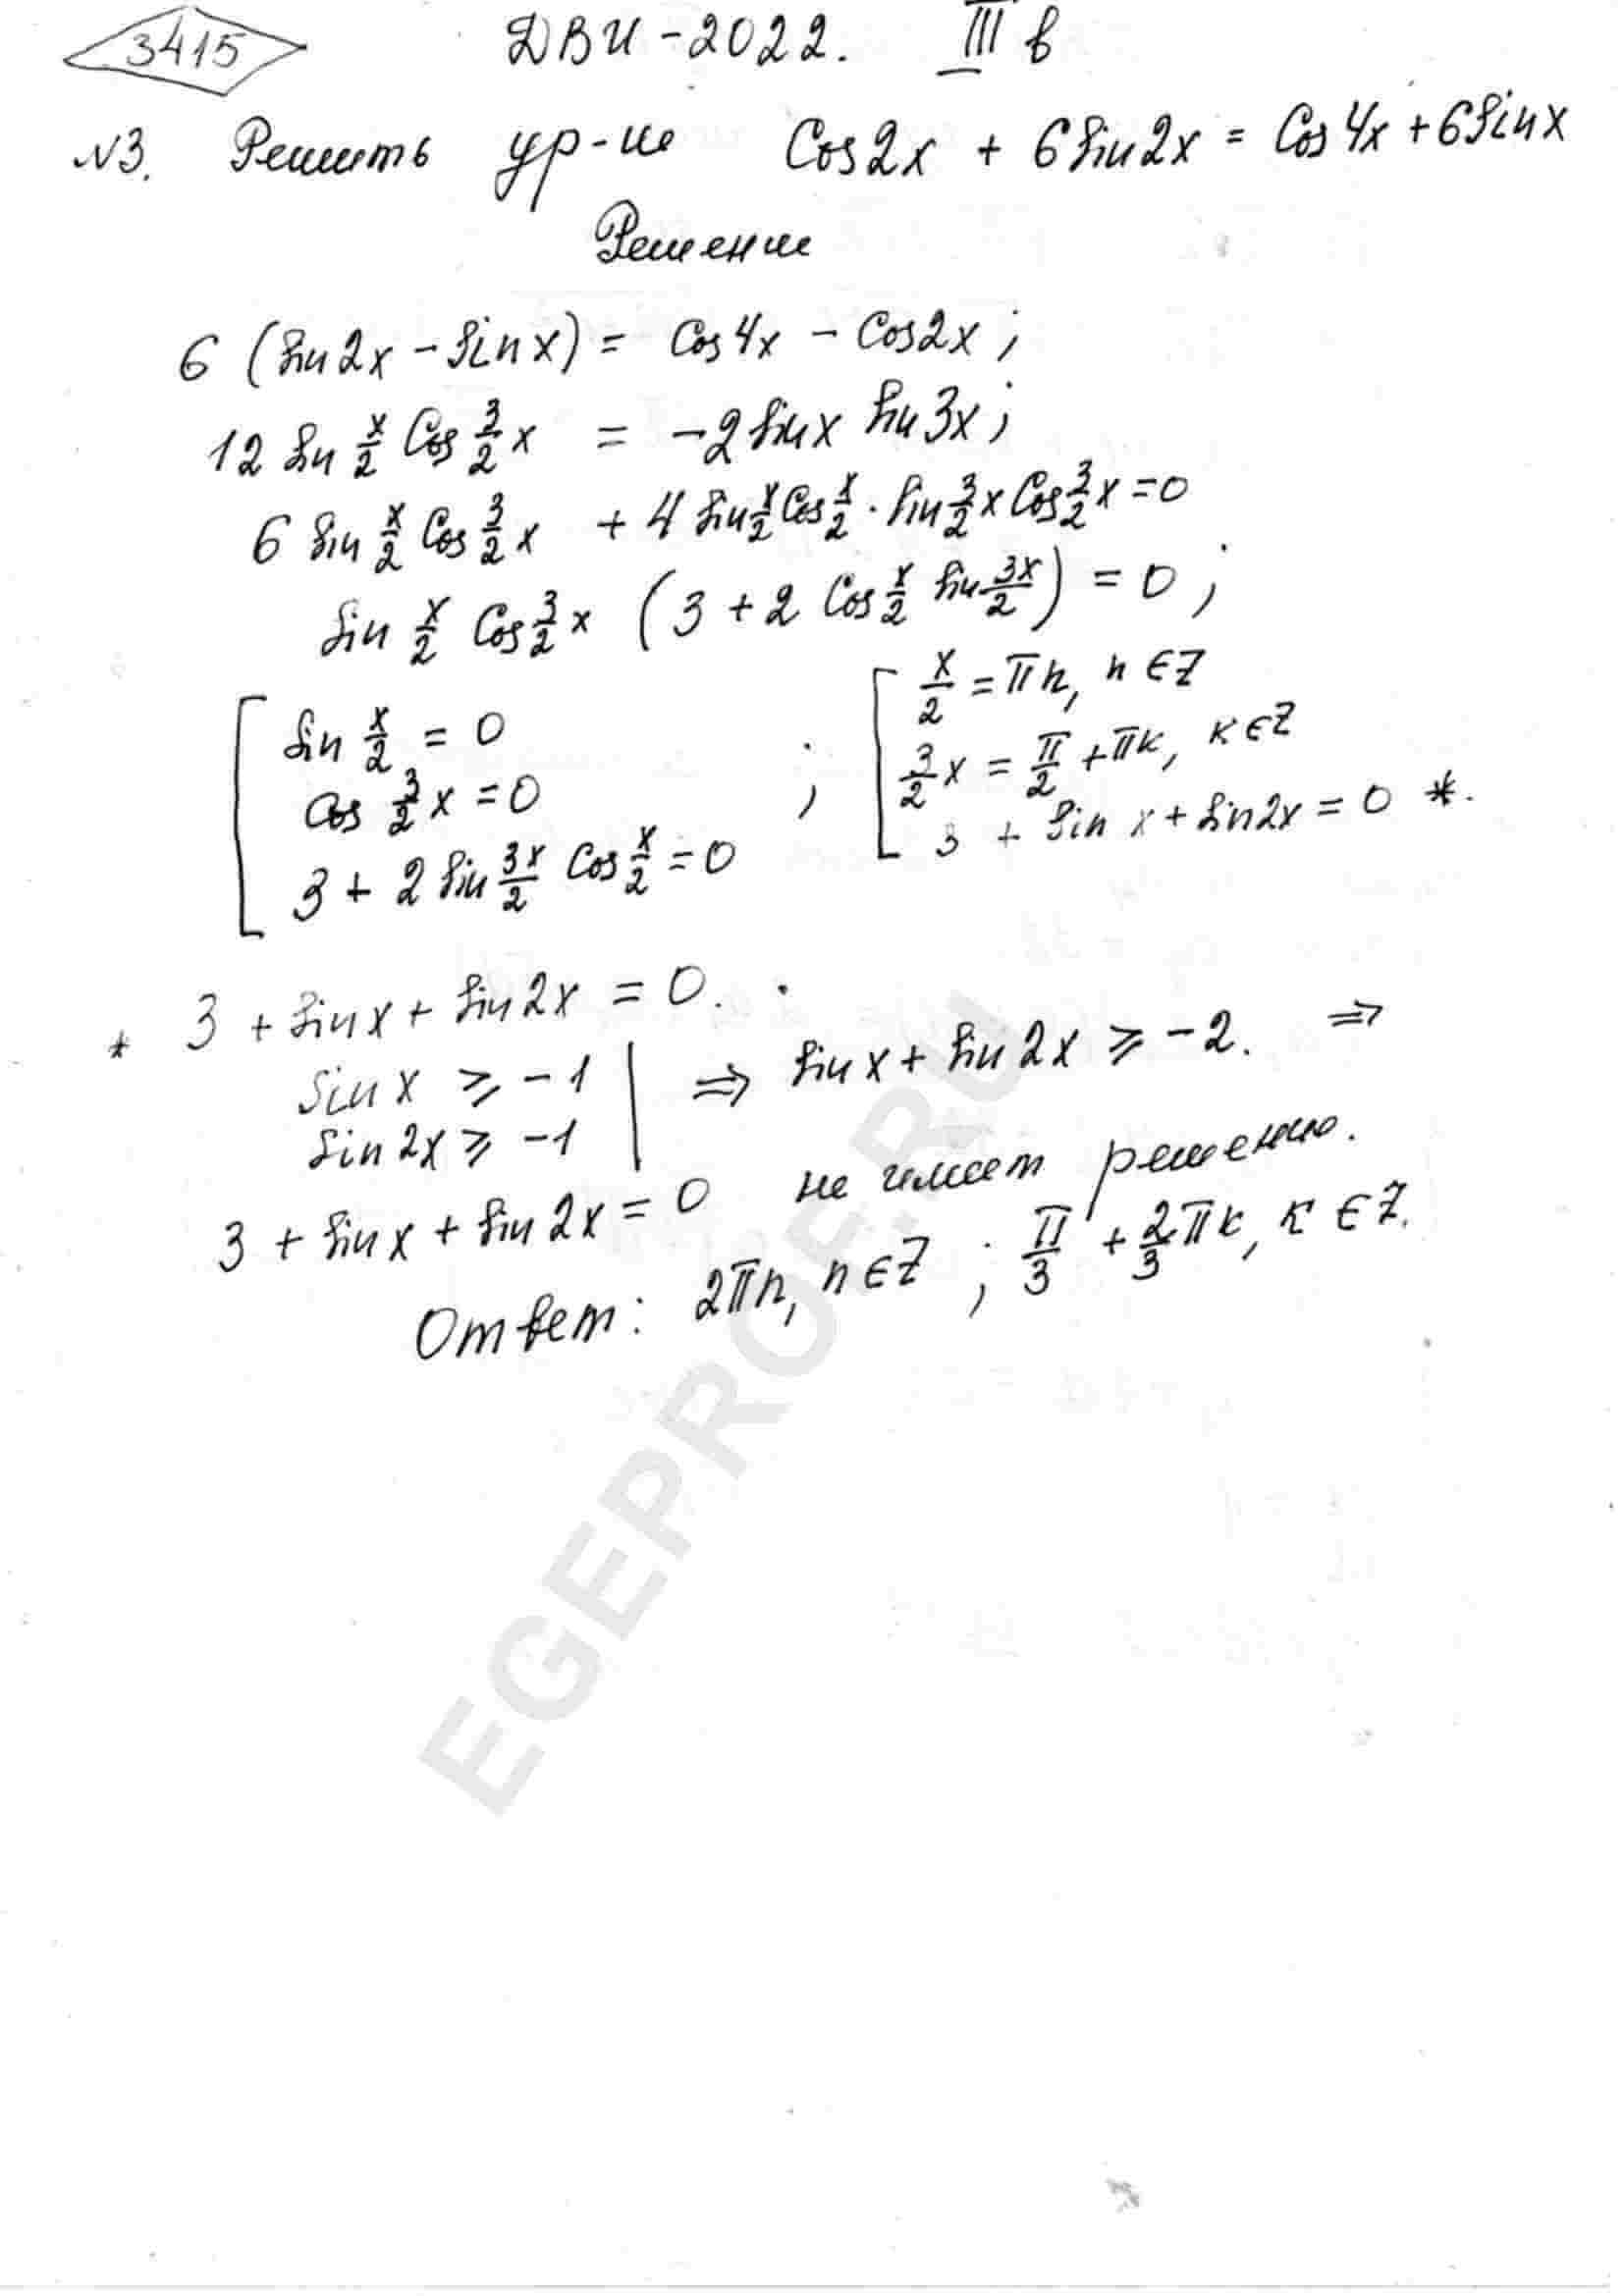 3415 ДВИ-2022. III в
№3. Решить ур-ие Cos2x + 6Sin2x = Cos4x + 6Sinx
Решение
6 (Sin2x - Sinx) = Cos4x - Cos2x;
12 Sin x/2 Cos 3/2 x = -2Sinx Sin3x;
6 Sin x/2 Cos 3/2 x + 4 Sin x/2 Cos x/2 · Sin 3/2 x Cos 3/2 x = 0
Sin x/2 Cos 3/2 x (3 + 2 Cos x/2 Sin 3x/2) = 0;
[ Sin x/2 = 0 ; [ x/2 = πn, n ∈ Z
Cos 3/2 x = 0 3/2 x = π/2 + πk, k ∈ Z
3 + 2 Sin 3x/2 Cos x/2 = 0 3 + Sin x + Sin2x = 0 *.
* 3 + Sinx + Sin2x = 0.
Sinx ⩾ -1 | ⇒ Sinx + Sin2x ⩾ -2. ⇒
Sin2x ⩾ -1
3 + Sinx + Sin2x = 0 не имеет решению.
Ответ: 2πn, n ∈ Z; π/3 + 2/3 πk, k ∈ Z.
EGEPROF.RU